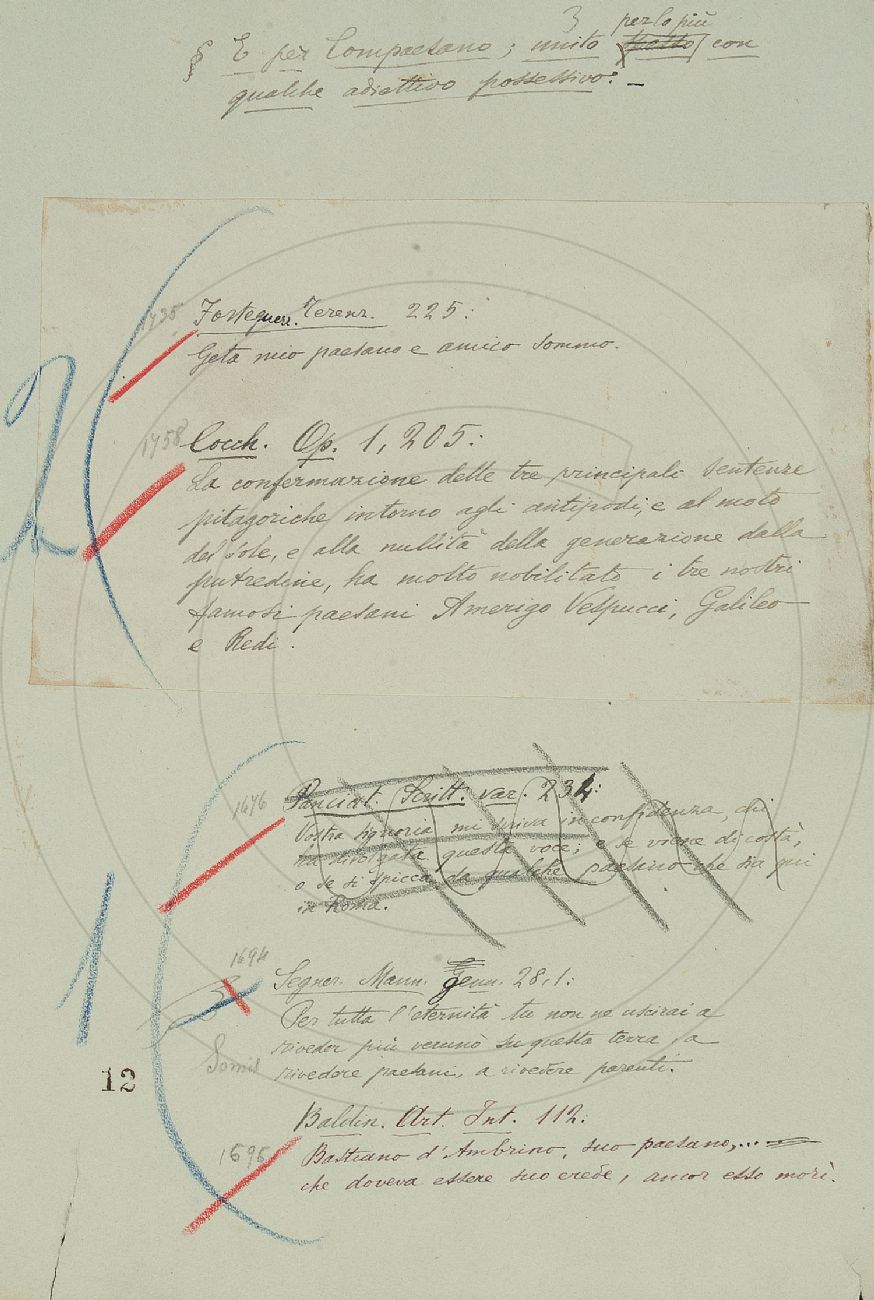 3 per lo più
§ E per Compaesano; unito spesso con
qualche adiettivo possessivo: –
1735
Forteguerr. Terenz. 225:
Geta mio paesano e amico sommo.
2
1758
Cocch. Op. 1, 205:
La confermazione delle tre principali sentenze
pitagoriche intorno agli antipodi, e al moto
del Sole, e alla nullità della generazione dalla
putredine, ha molto nobilitato i tre nostri
famosi paesani Amerigo Vespucci, Galileo
e Redi.
1676
Panciat. Scritt. var. 234:
Vostra signoria mi scriva in confidenza, chi
ha divolgata questa voce; e se viene di costà,
o se si spicca da qualche paesano che sia qui
in Roma.
1
1694
3
Segner. Mann. Genn. 28, 1:
Per tutta l'eternità tu non ne uscirai a
riveder più veruno su questa terra, a
rivedere paesani, a rivedere parenti.
12
Baldin. Art. Int. 112:
1696
Bastiano d'Ambrino, suo paesano,...
che doveva essere suo erede, ancor esso morì.